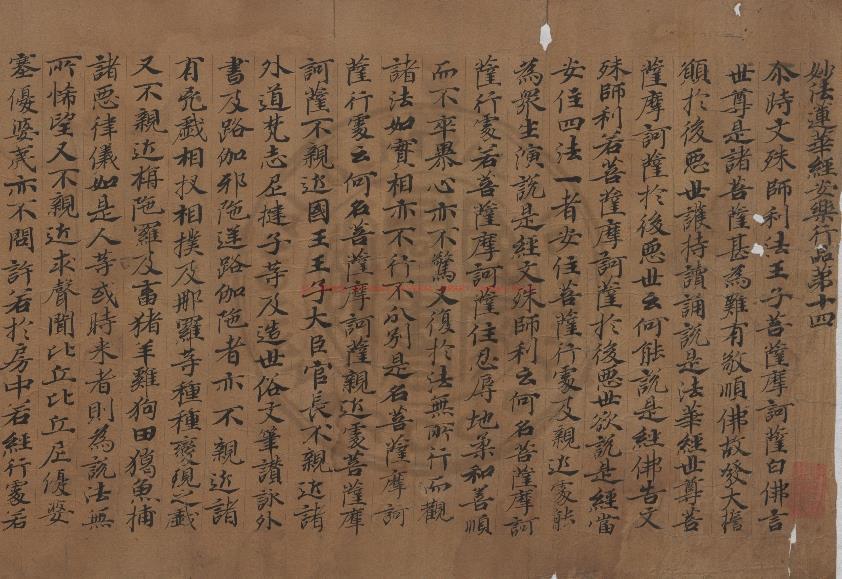 妙法蓮華經安樂行品第十四
尒時文殊師利法王子菩薩摩訶薩白佛言
世尊是諸菩薩甚為難有敬順佛故發大誓
願於後惡世護持讀誦說是法華經世尊菩
薩摩訶薩於後惡世云何能說是經佛告文
殊師利若菩薩摩訶薩於後惡世欲說是經當
安住四法一者安住菩薩行處及親近處能
為衆生演說是經文殊師利云何名菩薩摩訶
薩行處若菩薩摩訶薩住忍辱地柔和善順
而不卒暴心亦不驚又復於法無所行而觀
諸法如實相亦不行不分別是名菩薩摩訶
薩行處云何名菩薩摩訶薩親近處菩薩摩
訶薩不親近國王王子大臣官長不親近諸
外道梵志尼揵子等及造世俗文筆讚詠外
書及路伽耶陁逆路伽陁者亦不親近諸
有兇戲相扠相撲及那羅等種種變現之戲
又不親近栴陁羅及畜猪羊雞狗田獦魚捕
諸惡律儀如是人等或時来者則為說法無
所悕望又不親近求聲聞比丘比丘尼優婆
塞優婆夷亦不問訊若於房中若經行處若